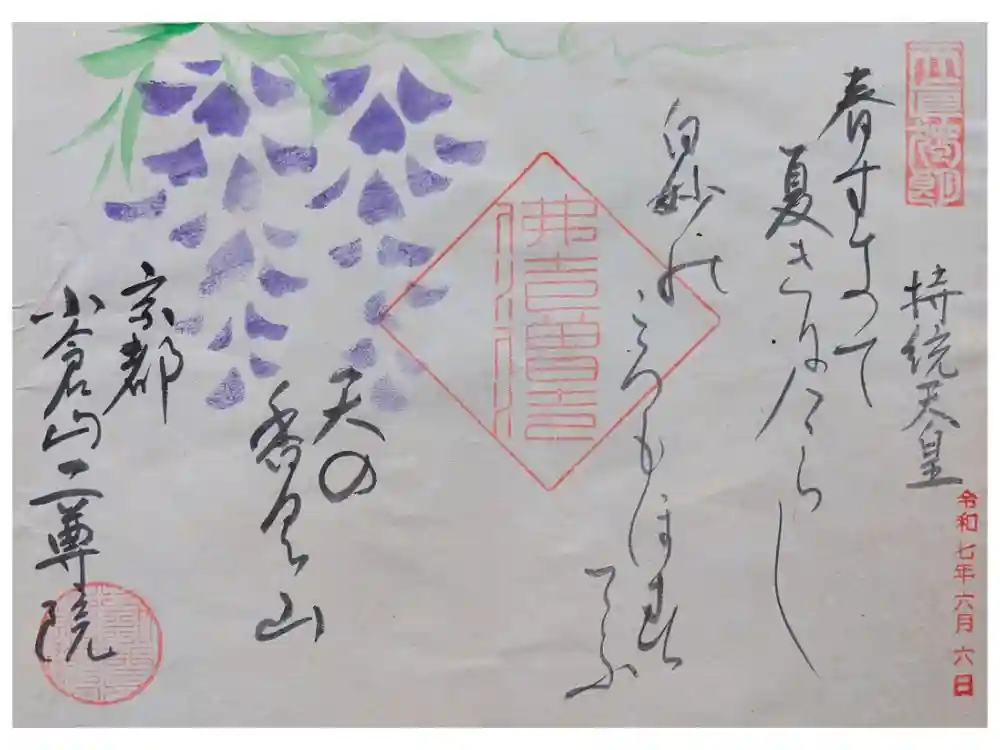 持統天皇
春すきて
夏きにけらし
白妙の
ころもほす
てふ
天の
香具山
京都
小倉山二尊院
令和七年六月六日
佛法僧寶